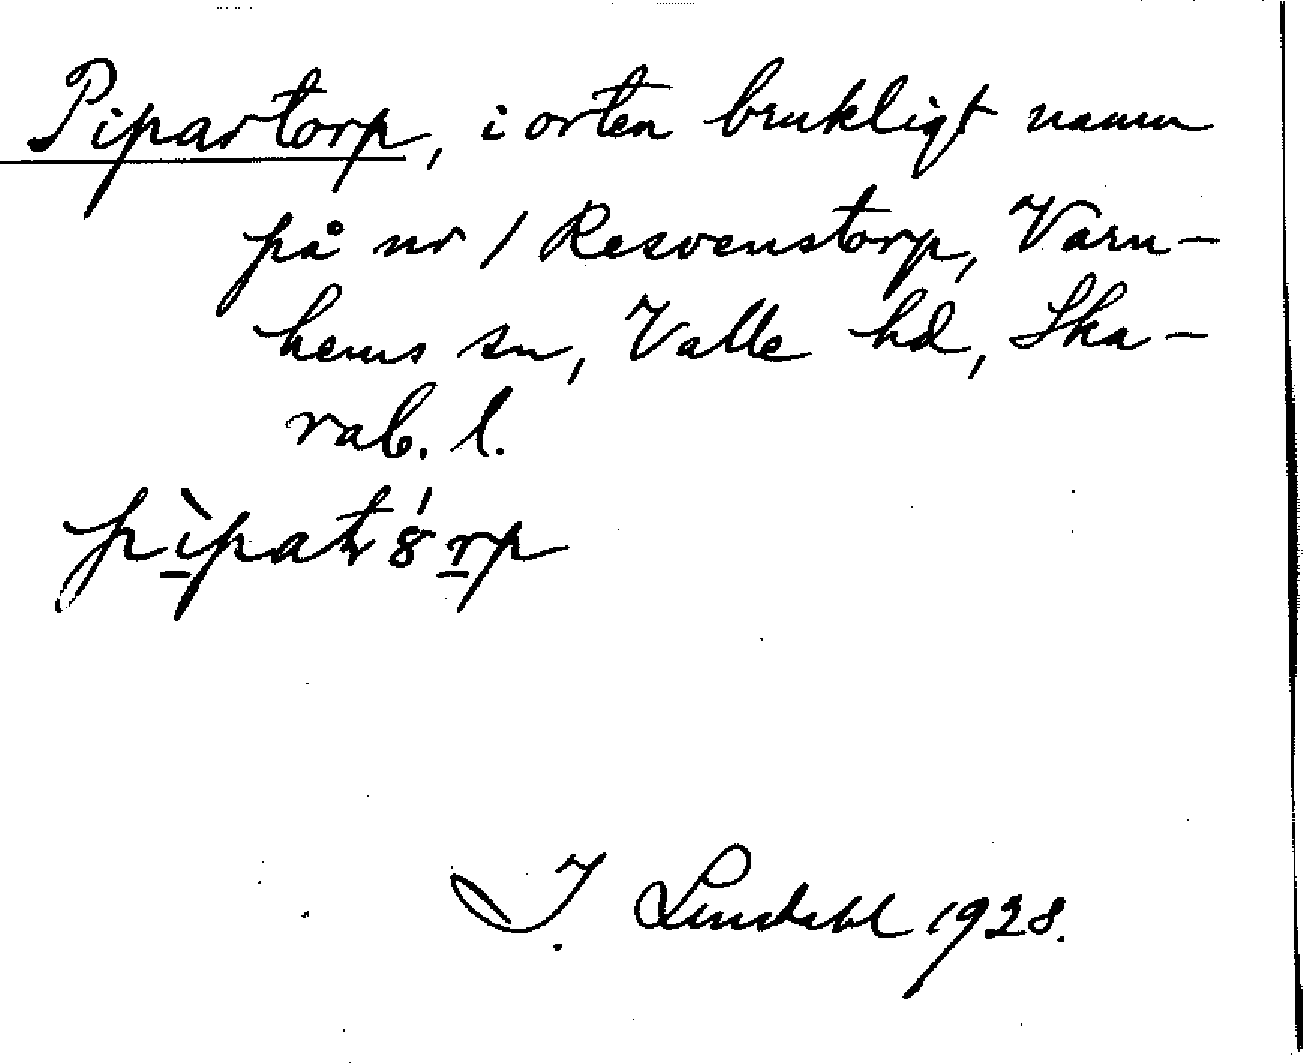 Pipartorp, i orten brukligt namn
på nr 1 Resvenstorp, Varn-
hems sn, Valle hd, Ska-
rab. l.
pìpató̀rp
I. Lindahl 1928.